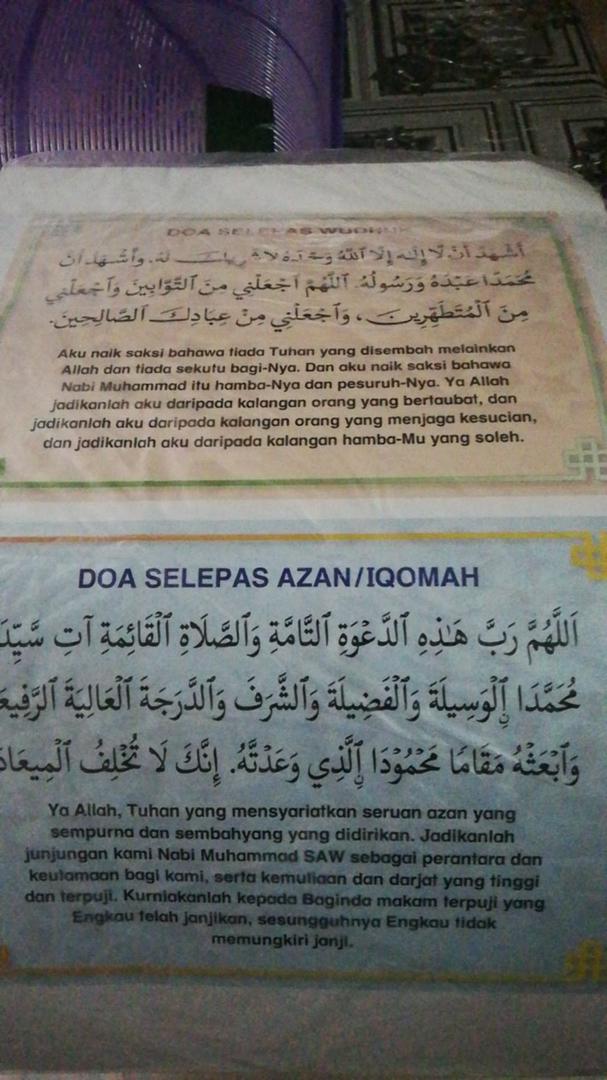 DOA SELEPAS WUDHUK
أَشْهَدُ أَنْ لَا إِلَٰهَ إِلَّا ٱللَّهُ وَحْدَهُ لَا شَرِيكَ لَهُ. وَأَشْهَدُ أَنَّ
مُحَمَّدًا عَبْدُهُ وَرَسُولُهُ. ٱللَّهُمَّ ٱجْعَلْنِي مِنَ ٱلتَّوَّابِينَ وَٱجْعَلْنِي
مِنَ ٱلْمُتَطَهِّرِينَ، وَٱجْعَلْنِي مِنْ عِبَادِكَ ٱلصَّالِحِينَ.
Aku naik saksi bahawa tiada Tuhan yang disembah melainkan
Allah dan tiada sekutu bagi-Nya. Dan aku naik saksi bahawa
Nabi Muhammad itu hamba-Nya dan pesuruh-Nya. Ya Allah
jadikanlah aku daripada kalangan orang yang bertaubat, dan
jadikanlah aku daripada kalangan orang yang menjaga kesucian,
dan jadikanlah aku daripada kalangan hamba-Mu yang soleh.
DOA SELEPAS AZAN/IQOMAH
اَللَّهُمَّ رَبَّ هَٰذِهِ ٱلدَّعْوَةِ ٱلتَّامَّةِ وَٱلصَّلَاةِ ٱلْقَائِمَةِ آتِ
مُحَمَّدًا ٱلْوَسِيلَةَ وَٱلْفَضِيلَةَ وَٱلشَّرَفَ وَٱلدَّرَجَةَ ٱلْعَالِيَةَ
وَٱبْعَثْهُ مَقَامًا مَحْمُودًا ٱلَّذِي وَعَدْتَهُ. إِنَّكَ لَا تُخْلِفُ ٱلْمِيعَادَ
Ya Allah, Tuhan yang mensyariatkan seruan azan yang
sempurna dan sembahyang yang didirikan. Jadikanlah
junjungan kami Nabi Muhammad SAW sebagai perantara dan
keutamaan bagi kami, serta kemuliaan dan darjat yang tinggi
dan terpuji. Kurniakanlah kepada Baginda makam terpuji yang
Engkau telah janjikan, sesungguhnya Engkau tidak
memungkiri janji.